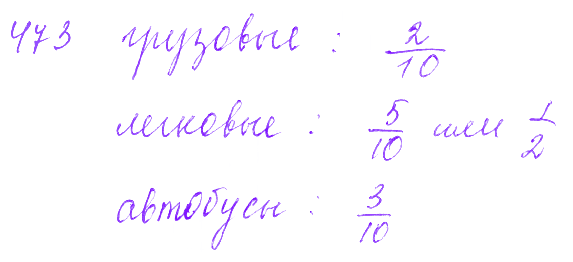 473 грузовые : 2/10
легковые : 5/10 или 1/2
автобусы : 3/10